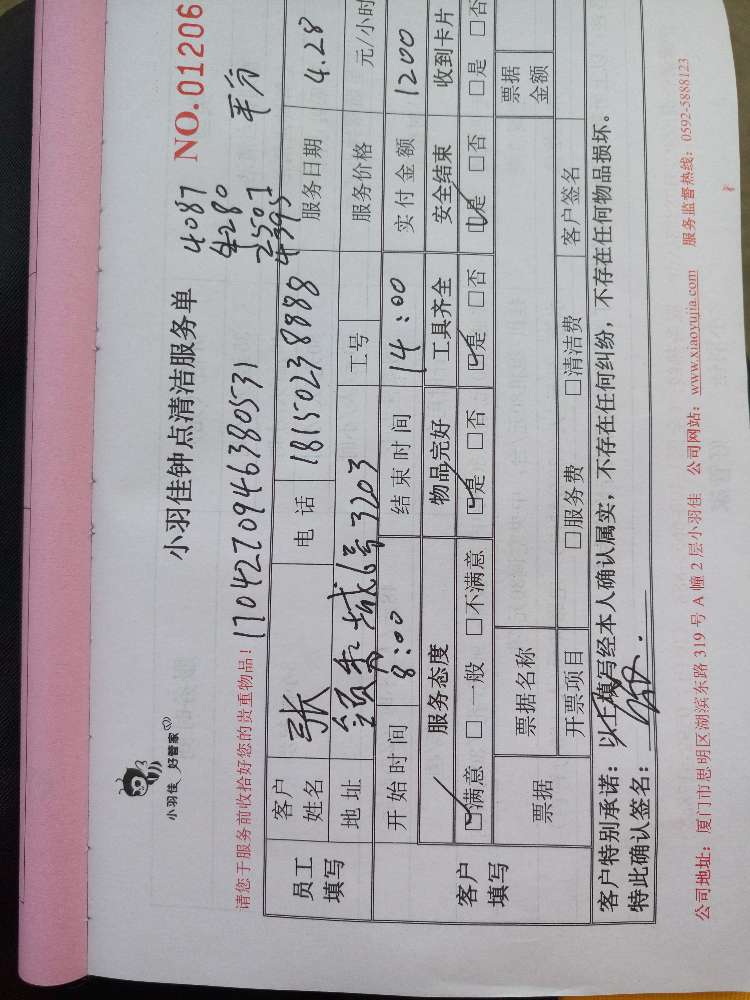 小羽佳 好管家
小羽佳钟点清洁服务单
NO.01206
4087
4280
2501
4395
平分
请您于服务前收拾好您的贵重物品！
17042709463805 31
员工填写
客户姓名 张 电话 18150238888 服务日期 4.28
地址 6号3203 工号 服务价格 元/小时
客户填写
开始时间 8:00 结束时间 14:00 实付金额 1200
服务态度 物品完好 工具齐全 安全结束 收到卡片
☑满意 □一般 □不满意 ☑是 □否 ☑是 □否 ☑是 □否 □是 □否
票据 票据名称 票据金额
开票项目 □服务费 □清洁费 客户签名
客户特别承诺：以上填写经本人确认属实，不存在任何纠纷，不存在任何物品损坏。
特此确认签名：
公司地址：厦门市思明区湖滨东路 319 号 A 幢 2 层小羽佳 公司网站：www.xiaoyujia.com 服务监督热线：0592-5888123